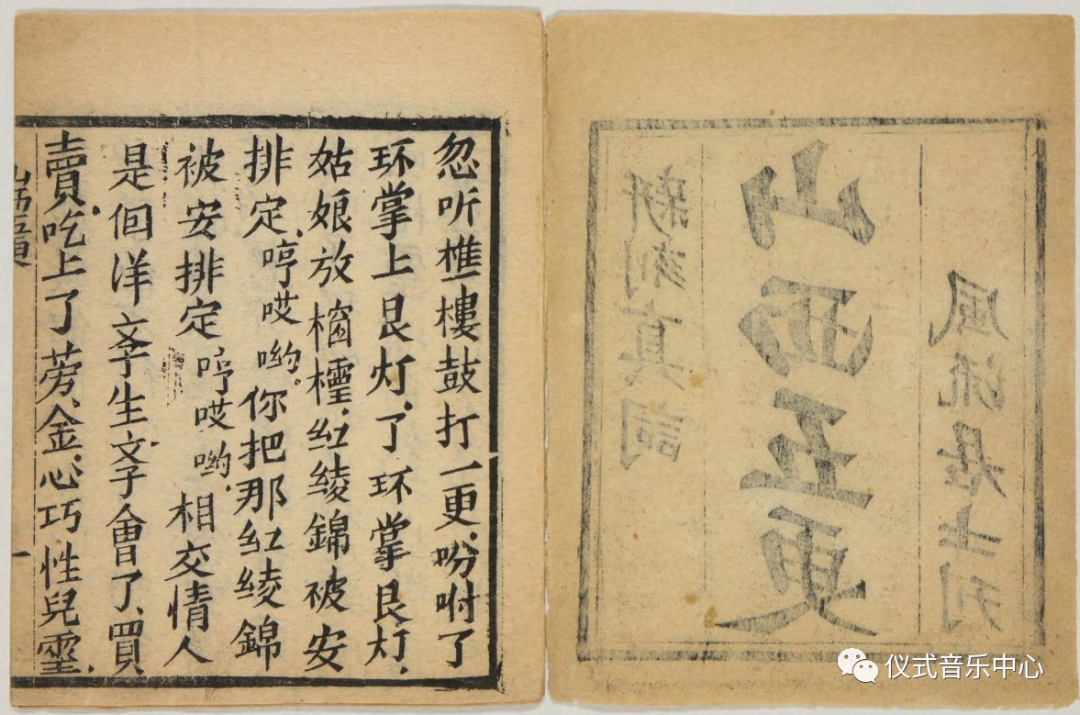 新刻真詞
山西五更
風流居士刊
忽听樵樓鼓打一更、吩咐了
环掌上艮灯、了环掌艮灯、
姑娘放窗櫺、红绫錦被安
排定、哼哎哟。你把那红绫錦
被安排定哼哎哟、相交情人
是佪洋斈生文子會了、買
賣、吃上了劳、金、心巧性兒霊、
山西五更
一
仪式音乐中心